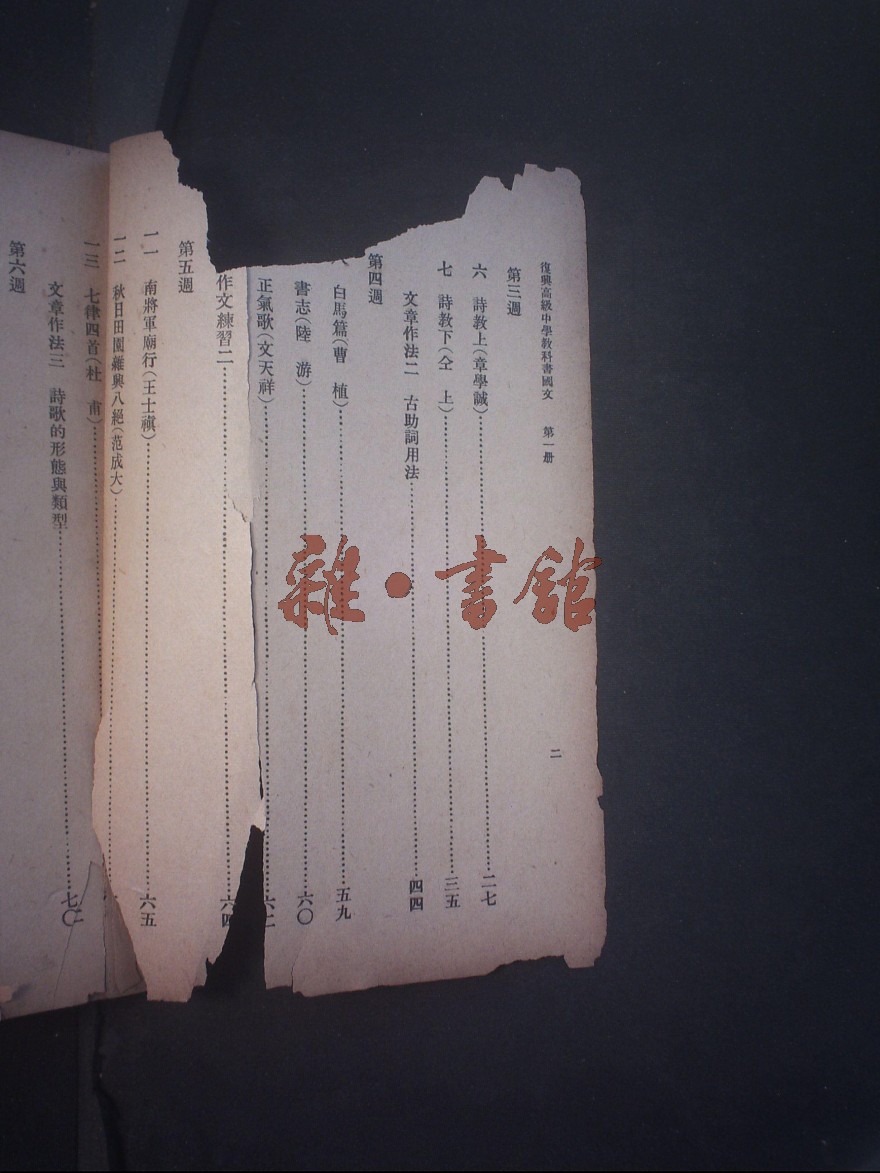 復興高級中學教科書國文 第一册
二
第三週
六 詩教上(章學誠)……二七
七 詩教下(仝 上)……三五
文章作法二 古助詞用法……四四
第四週
白馬篇(曹 植)……五九
書志(陸 游)……六〇
正氣歌(文天祥)……六二
作文練習二……六四
第五週
一一 南將軍廟行(王士禛)……六五
一二 秋日田園雜興八絕(范成大)……
一三 七律四首(杜 甫)……
文章作法三 詩歌的形態與類型……七〇
第六週
雜·書館